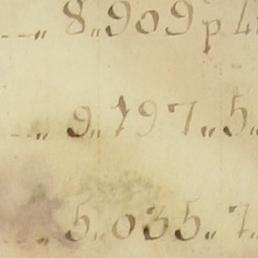 8„909 p
9„797„5„
5„035„7„